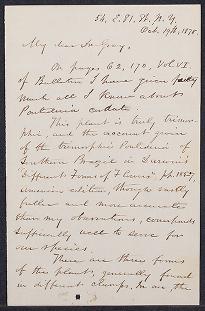 54. E. 81. St. N. Y.
Oct. 19th, 1878.
My dear Dr Gray,
On pages 62, 170, Vol VI.
of Bulletin I have given pretty
much all I know about
Pontederia cordata.
This plant is truly trimor-
phic, and the account given
of the trimorphic Pontederia of
Southern Brazil in Darwin's
"Different Forms of Flowers" pp.
American edition, though vastly
fuller and more accurate
than my observations, corresponds
sufficiently well to serve for
our species.
There are three forms
of the plants, generally found
in different clumps. In one, the